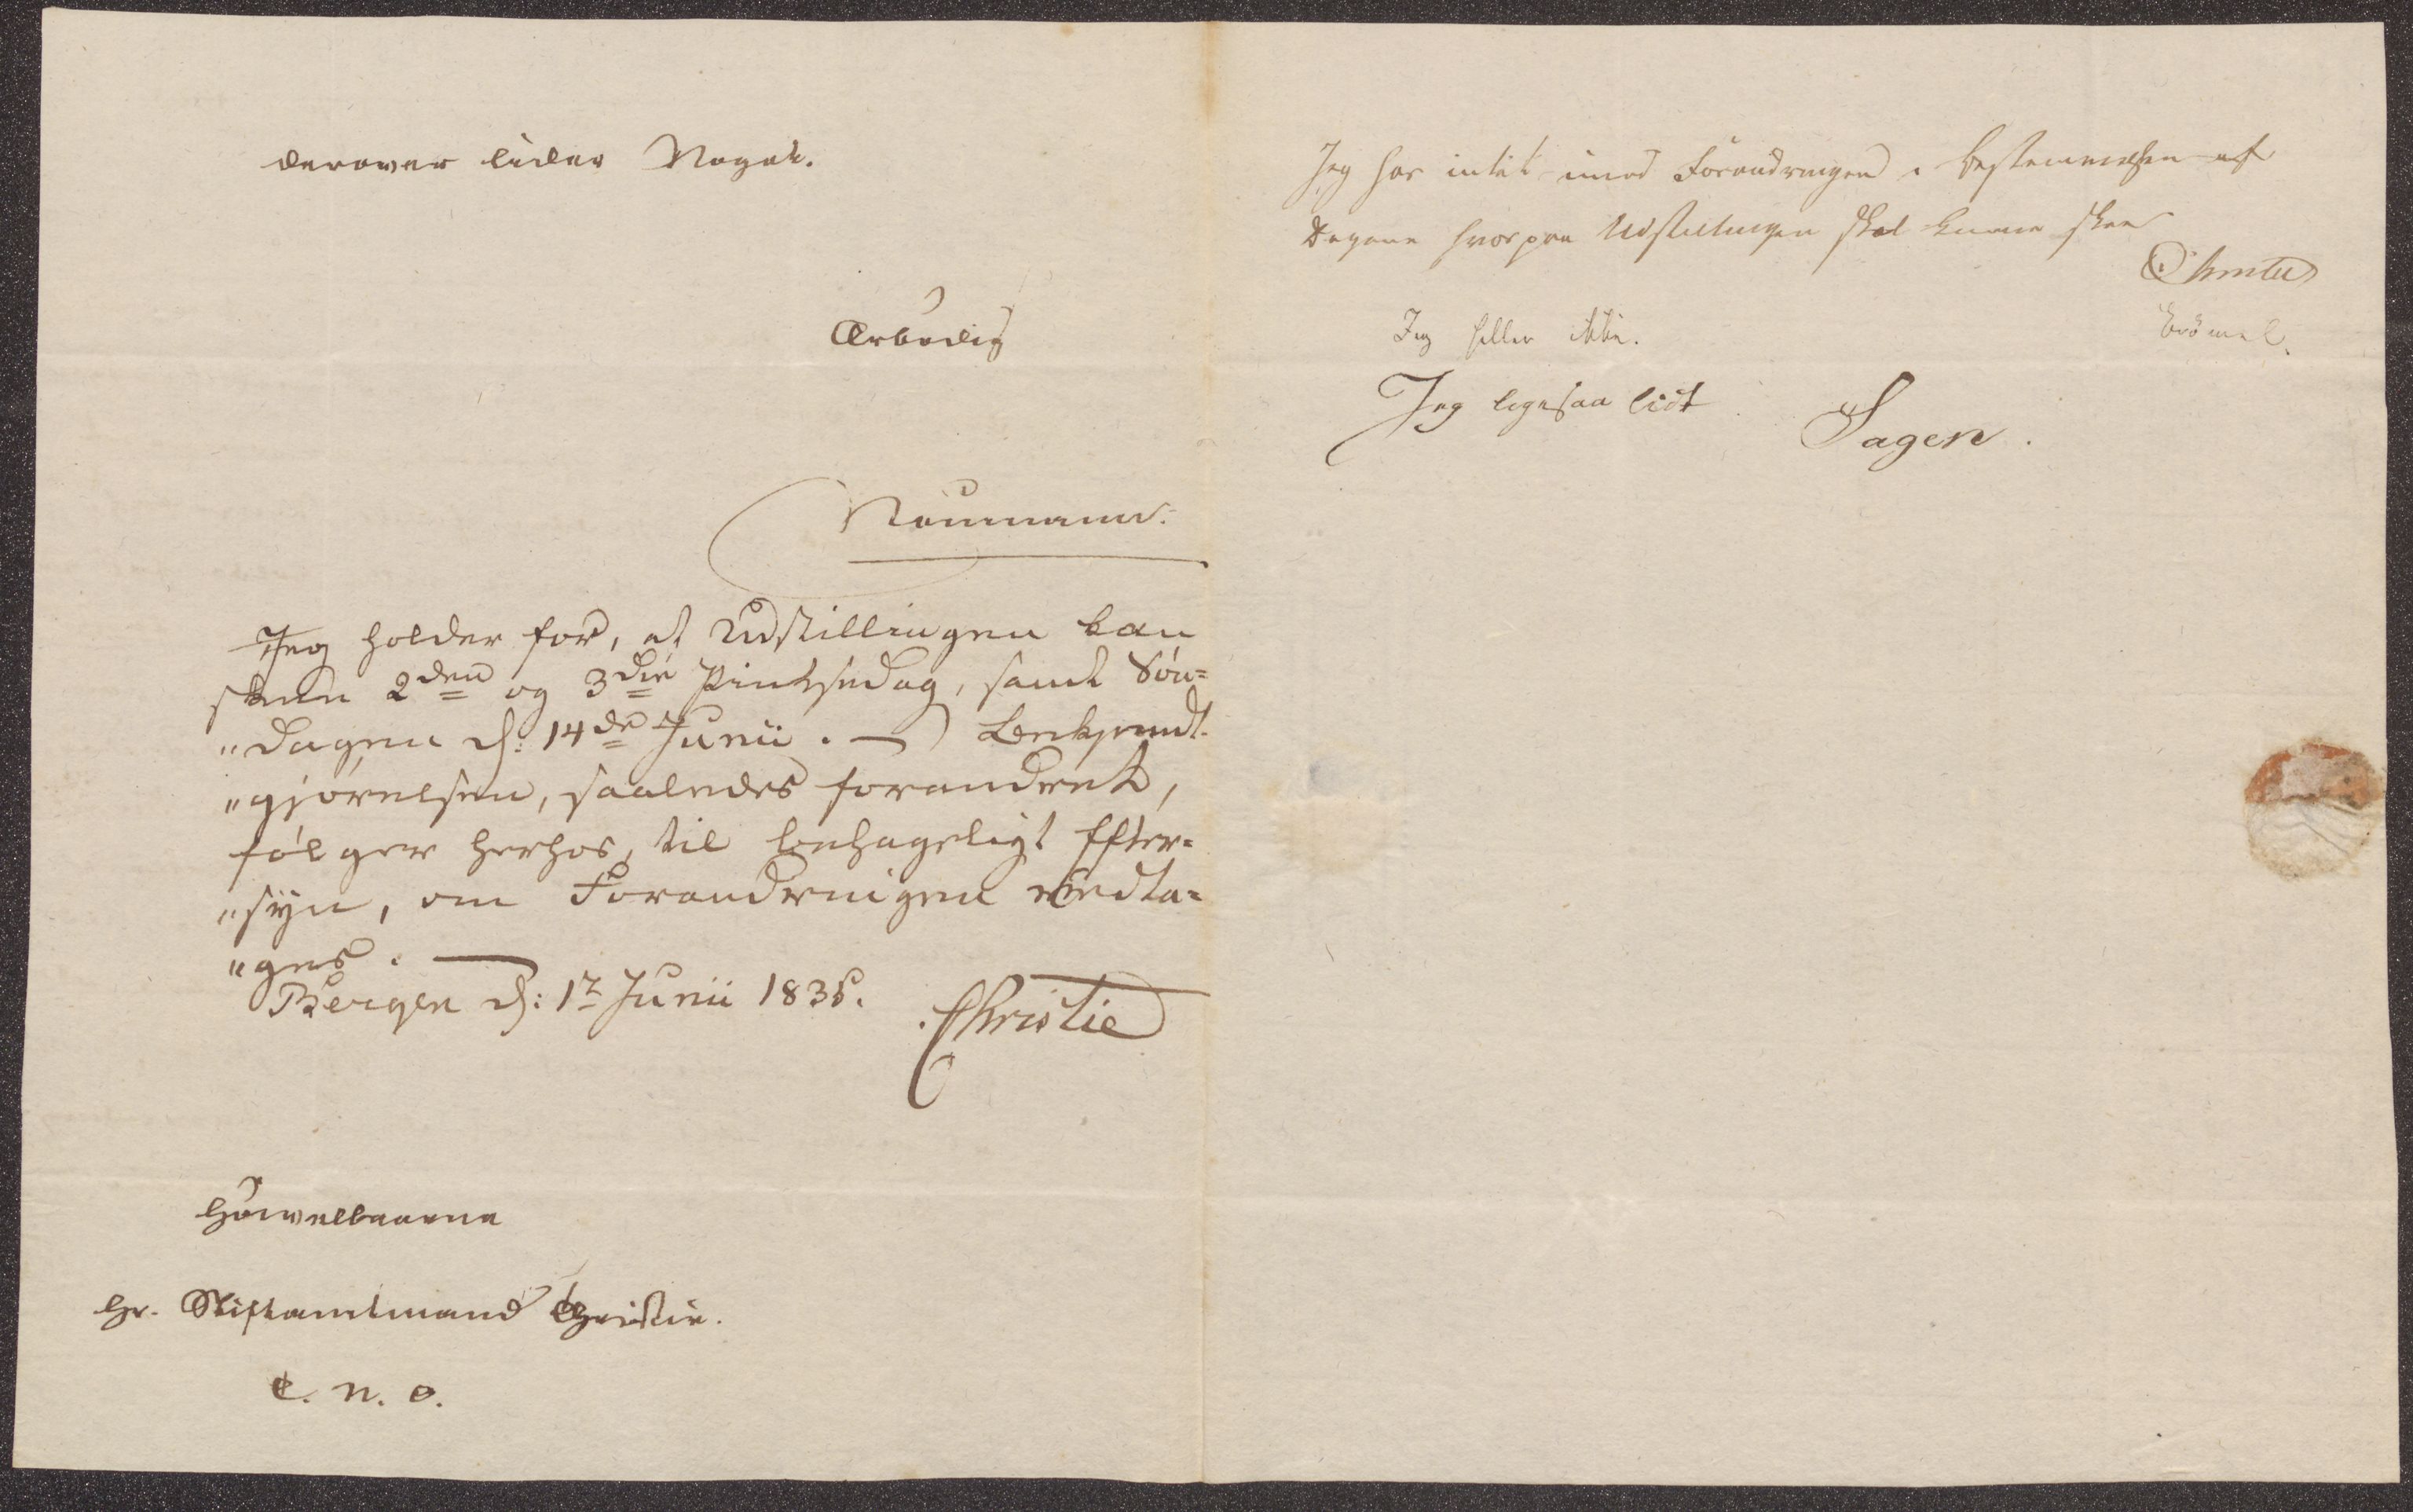 derover lider Noget.
Ærbødig
Neumann.
Jeg holder for, at Udstillingen kan
skee 2den og 3die Pintsedag, samt Søn=
"dagen d: 14de Junii. — Bekjendt-
"gjørelsen, saaledes forandret,
følger herhos, til behageligt Efter=
"syn, om Forandringen vedta=
"ges. —
Bergen d: 1ste Junii 1835. Christie
Høivelbaarne
Hr. Stiftamtmand Christie.
C. N. O.
Jeg har intet imod Forandringen i Bestemmelsen af
Dagene hvorpaa Udstillingen skal kunne skee
Jeg heller ikke.
Jeg ligesaa lidt
Sagen.